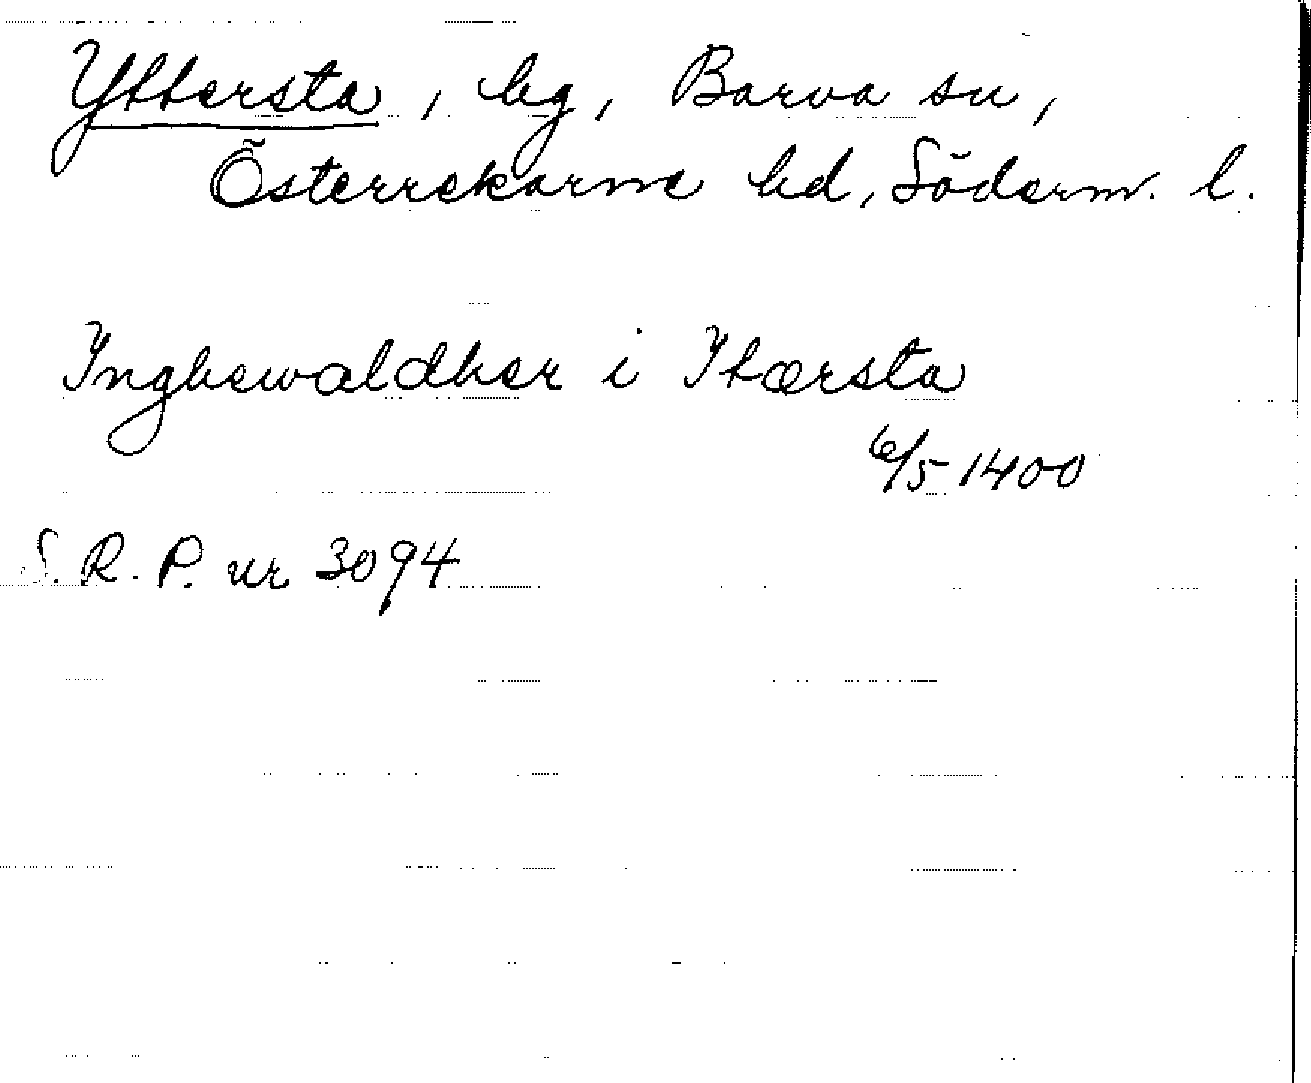 Yttersta, by, Barva sn,
Österrekarne hd, Söderm. l.
Inghewaldher i Ytærsta
6/5 1400
S. R. P. nr 3094